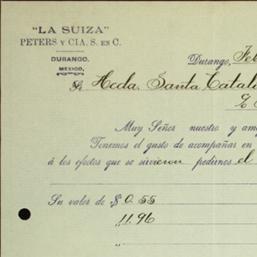 "LA SUIZA"
PETERS Y CIA, S. EN C.
DURANGO,
MEXICO,
Durango, Feb
Sr. Hcda. Santa Catal
Muy Señor nuestro y am
Tenemos el gusto de acompañar en
á los efectos que se sirvieron pedirnos el
Su valor de $ 0.55
" 11.96
"